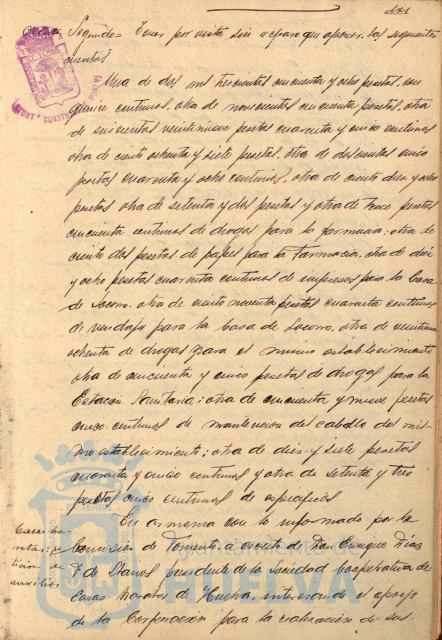 Segundo: Tener por vista sin reparo que oponer las siguientes
cuentas
Una de dos mil trescientas cincuenta y ocho pesetas con
quince centimos, otra de novecientas cincuenta pesetas, otra
de seiscientas veintinueve pesetas cuarenta y cinco centimos
otra de ciento ochenta y siete pesetas, otra de doscientas cinco
pesetas cuarenta y ocho centimos, otra de ciento diez y ocho
pesetas otra de setenta y dos pesetas y otra de trece pesetas
cincuenta centimos de drogas para la farmacia: otra de
ciento dos pesetas de papel para la Farmacia, otra de diez
y ocho pesetas cuarenta centimos de impresos para la Casa
de Socorro, otra de ciento noventa pesetas cuarenta centimos
de vendajes para la Casa de Socorro, otra de
ochenta de drogas para el mismo establecimiento
otra de cincuenta y cinco pesetas de drogas para la
Estacion Sanitaria; otra de cincuenta y nueve pesetas
cinco centimos de manutencion del caballo del mis-
mo establecimiento; otra de diez y siete pesetas
cuarenta y cinco centimos y otra de setenta y tres
pesetas cinco centimos de especificos
Casas ba-
ratas; pe-
ticion de
auxilios
En armonia con lo informado por la
Comision de Fomento, a escrito de Don Enrique Diaz
F. de Llanos, presidente de la Sociedad Cooperativa de
Casas baratas de Huelva, interesando el apoyo
de la Corporacion para la realizacion de sus
HUELVA